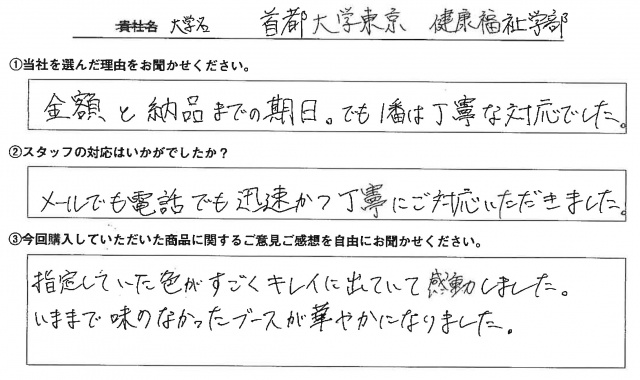 貴社名 大学名 首都大学東京 健康福祉学部
①当社を選んだ理由をお聞かせください。
金額と納品までの期日。でも1番は丁寧な対応でした。
②スタッフの対応はいかがでしたか？
メールでも電話でも迅速かつ丁寧にご対応いただきました。
③今回購入していただいた商品に関するご意見ご感想を自由にお聞かせください。
指定していた色がすごくキレイに出ていて感動しました。
いままで味のなかったブースが華やかになりました。